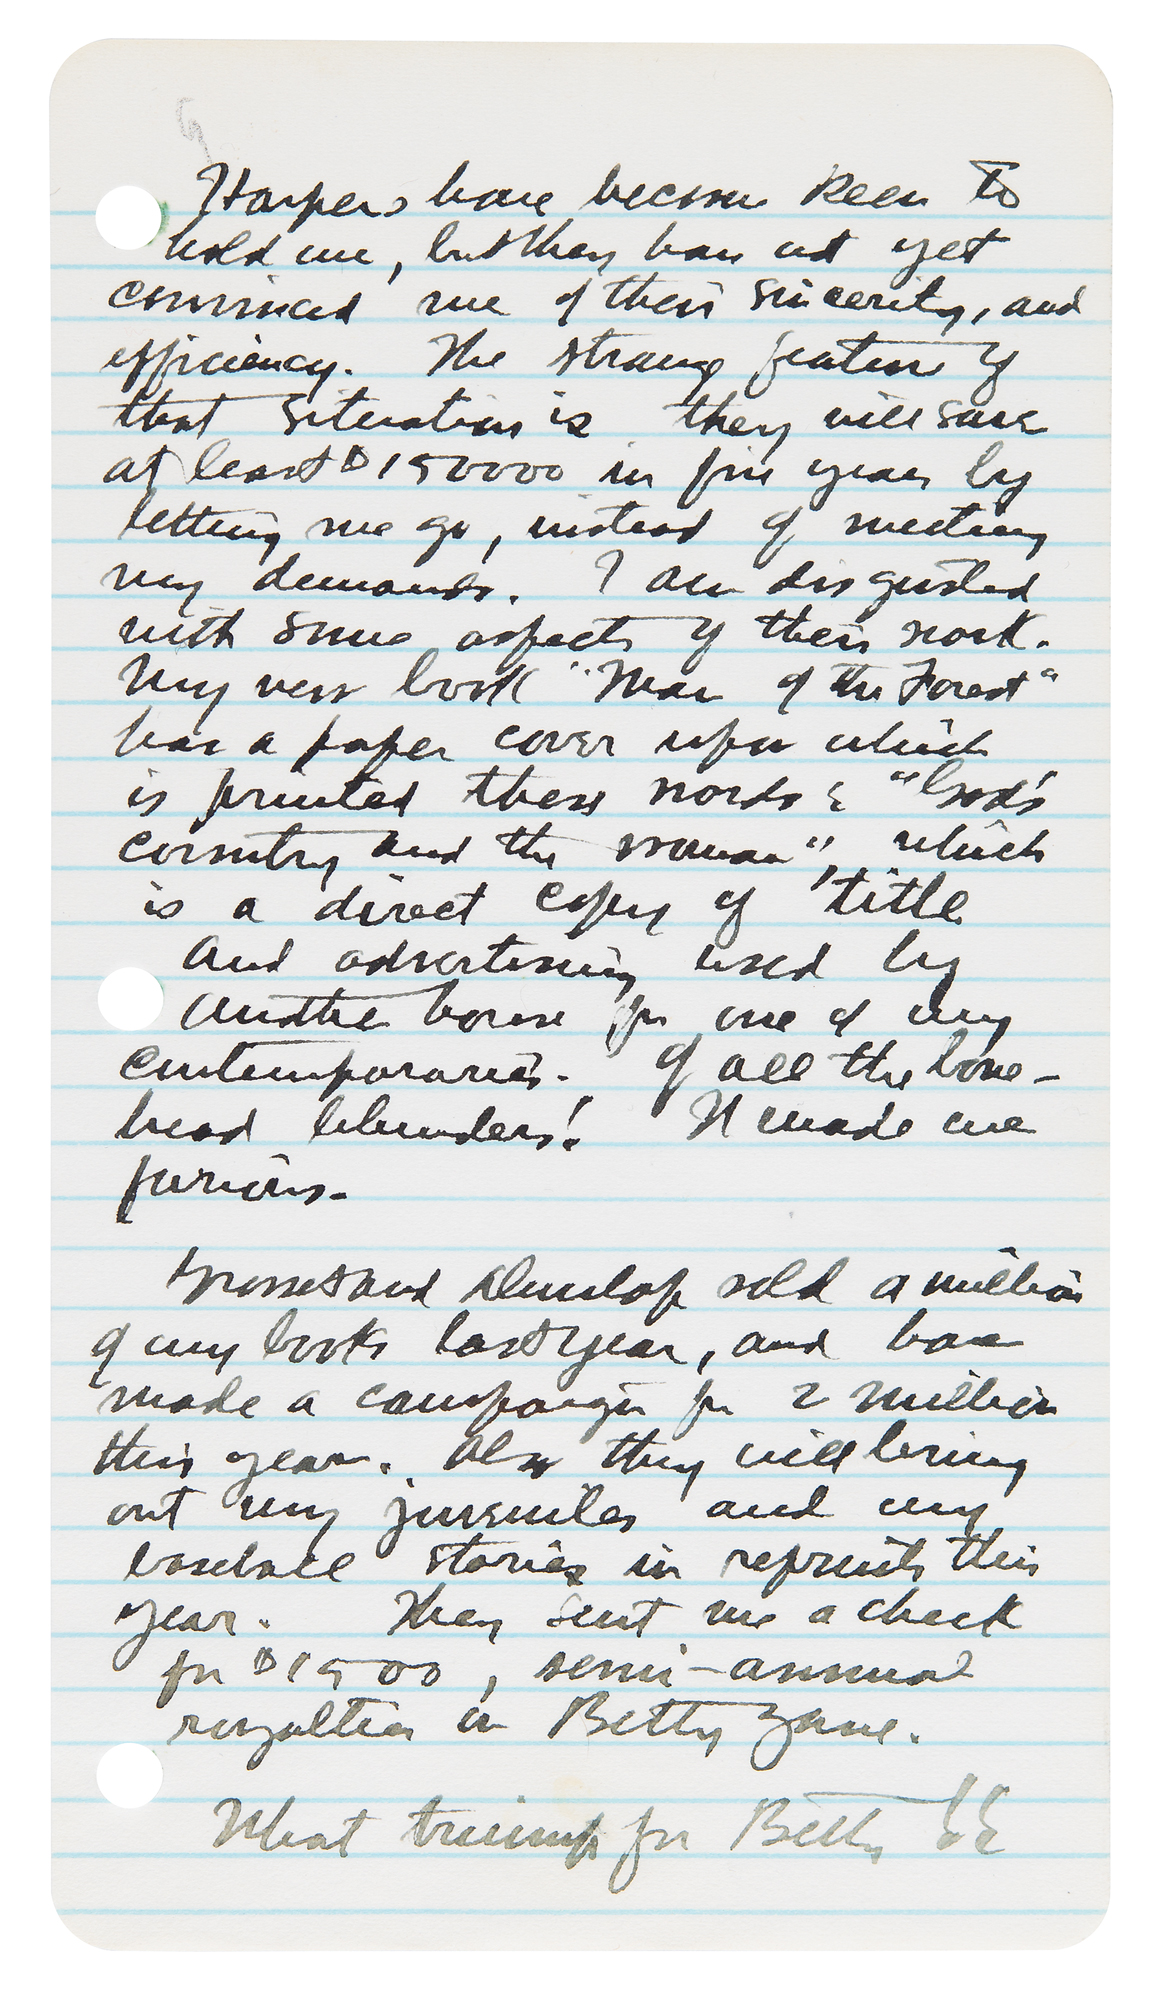 Harpers have become keen to
hold me, but they have not yet
convinced me of their sincerity, and
efficiency. The strange feature of
that situation is they will save
at least $150000 in five years by
letting me go, instead of meeting
my demands. I am disgusted
with some aspects of their work.
My new book "Man of the Forest"
has a paper cover upon which
is printed these words: "God's
country and the woman", which
is a direct copy of title
and advertising used by
another house for one of my
contemporaries. Of all the bone-
head blunders! It made me
furious.
Grosset and Dunlap sold a million
of my books last year, and have
made a campaign for 2 million
this year. Also they will bring
out my juveniles and my
baseball stories in reprints this
year. They sent me a check
for $1500, semi-annual
royalties on Betty Zane.
What triump for Betty!!